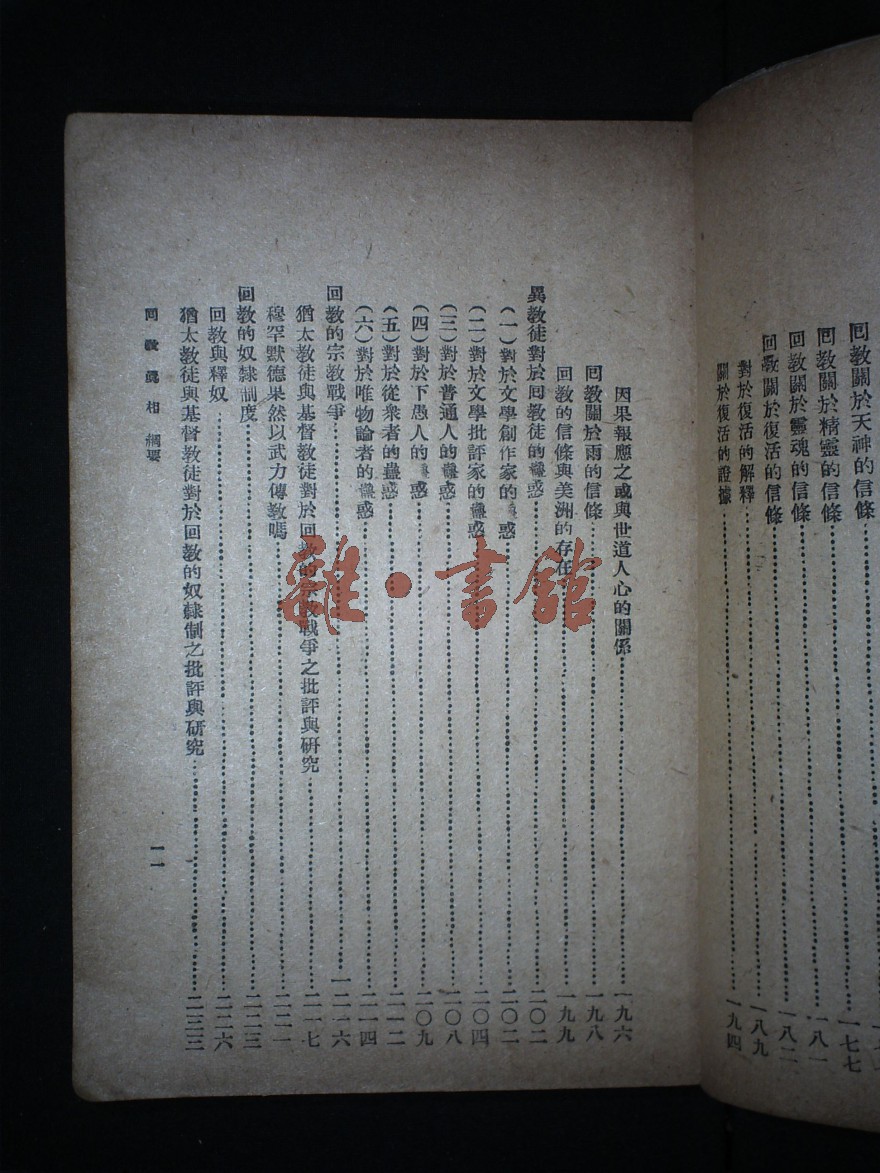 回教關於天神的信條
回教關於精靈的信條 一七七
回教關於靈魂的信條 一八一
回教關於復活的信條 一八二
對於復活的解釋 一八九
關於復活的證據 一九四
因果報應之或與世道人心的關係 一九六
回教關於雨的信條 一九八
回教的信條與美洲的存在 一九九
異教徒對於回教徒的蠱惑 二〇二
(一)對於文學創作家的蠱惑 二〇二
(二)對於文學批評家的蠱惑 二〇四
(三)對於普通人的蠱惑 二〇八
(四)對於下愚人的蠱惑 二〇九
(五)對於從衆者的蠱惑 二一二
(六)對於唯物論者的蠱惑 二一四
回教的宗教戰爭 二一六
猶太教徒與基督教徒對於回教的宗教戰爭之批評與研究 二一七
穆罕默德果然以武力傳教嗎 二二一
回教的奴隸制度 二二三
回教與釋奴 二二六
猶太教徒與基督教徒對於回教的奴隸制之批評與研究 二三三
回教眞相 綱要 一一
雜·書館